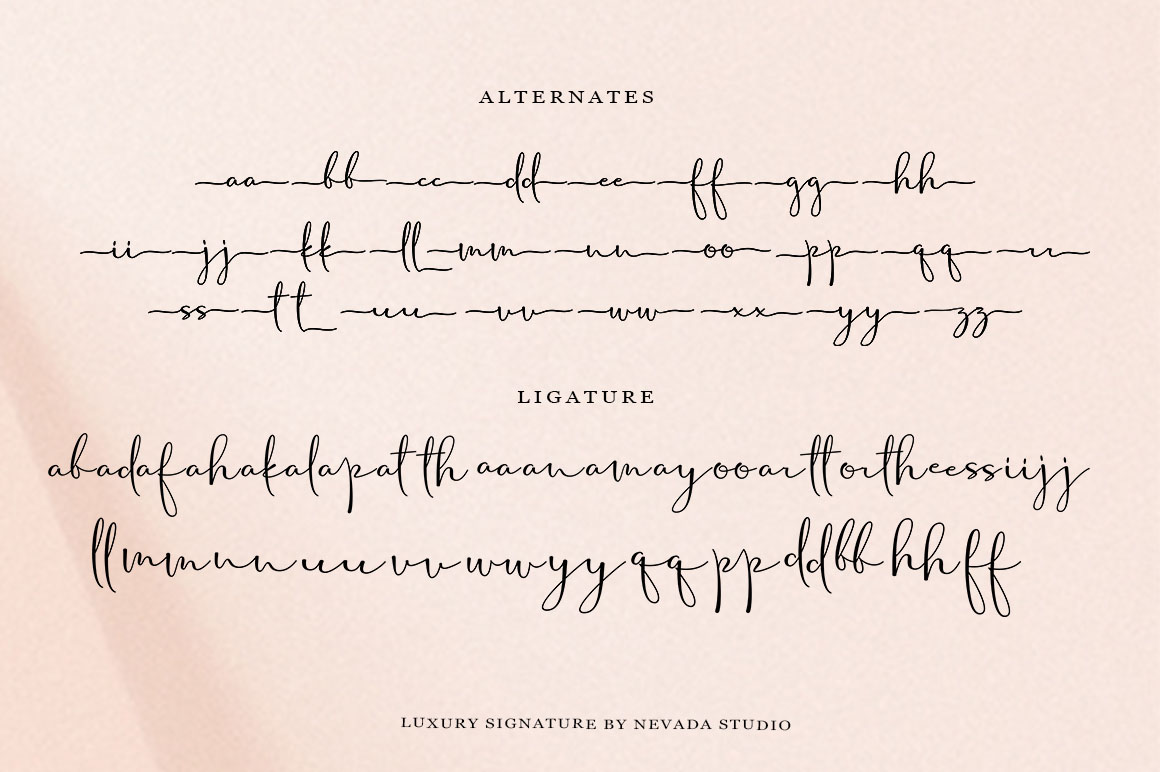 ALTERNATES
aa bb cc dd ee ff gg hh
ii jj kk ll mm nn oo pp qq rr
ss tt uu vv ww xx yy zz
LIGATURE
abadafahakalapat th aaanamayooarttortheessiijj
llmmnnuuvvwwyyqqppddbbhhff
LUXURY SIGNATURE BY NEVADA STUDIO